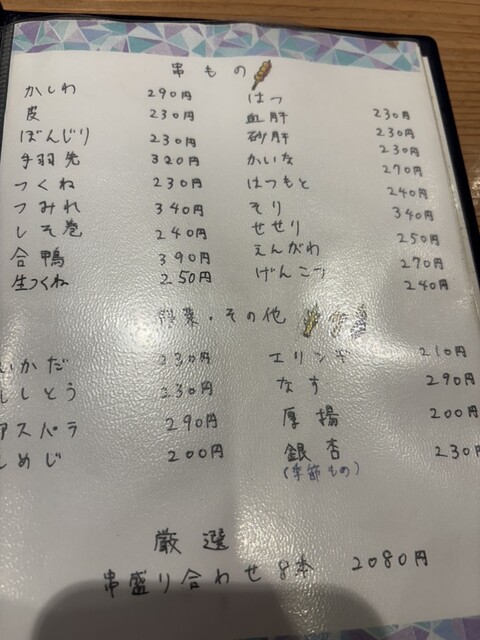 串もの
かしわ 290円
皮 230円
ぼんじり 230円
手羽先 320円
つくね 230円
つみれ 340円
しそ巻 240円
合鴨 390円
生つくね 250円
はつ 230円
血肝 230円
砂肝 230円
かいな 270円
はつもと 240円
そり 340円
せせり 250円
えんがわ 270円
げんこつ 240円
野菜・その他
いかだ 230円
ししとう 230円
アスパラ 290円
しめじ 200円
エリンギ 210円
なす 290円
厚揚 200円
銀杏 230円
(季節もの)
厳選
串盛り合わせ8本 2080円